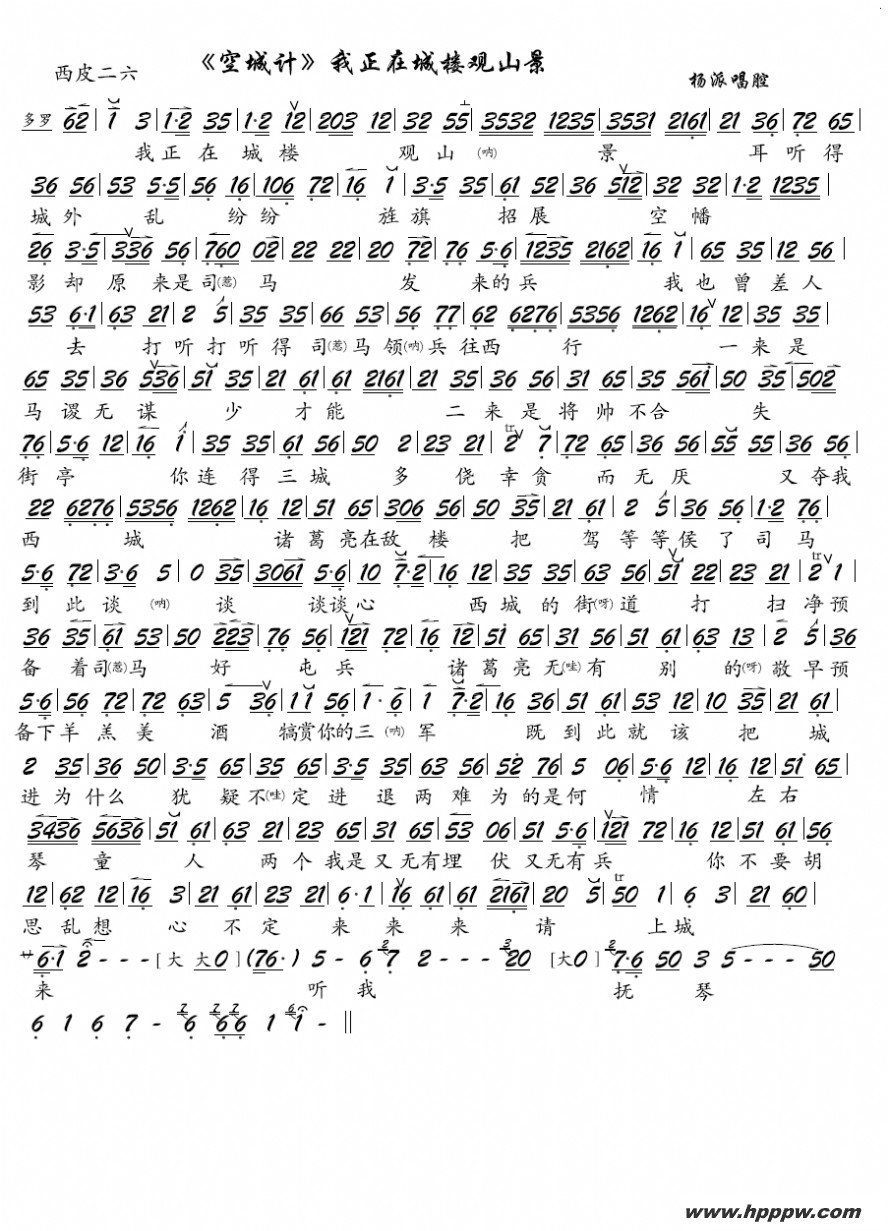 《空城计》我正在城楼观山景
西皮二六 杨派唱腔
多罗 62 | 1 3 | 1·2 35 | 1·2 12 | 203 12 | 32 55 | 3532 1235 | 3531 2161 | 21 36 | 72 65 |
我正在城楼观山(呐)景耳听得
36 56 | 53 5·5 | 56 16 | 106 72 | 16 1 | 3·5 35 | 61 52 | 36 512 | 32 32 | 1·2 1235 |
城外乱纷纷旌旗招展空幡
26 3·5 | 336 56 | 760 02 | 22 22 | 20 72 | 76 5·6 | 1235 2162 | 16 1 | 65 35 | 12 56 |
影却原来是司(葱)马发来的兵我也曾差人
53 6·1 | 63 21 | 2 5 | 35 35 | 66 53 | 56 77 | 62 6276 | 5356 1262 | 16 12 | 35 35 |
去打听打听得司(葱)马领(呐)兵往西行一来是
65 35 | 36 536 | 51 35 | 21 61 | 61 2161 | 21 36 | 56 31 | 65 35 | 561 50 | 35 502 |
马谡无谋少才能二来是将帅不合失
76 | 5·6 12 | 16 1 | 35 35 | 61 56 | 50 2 | 23 21 | 2 7 | 72 65 | 36 56 | 55 55 | 36 56 |
街亭你连得三城多侥幸贪而无厌又夺我
22 6276 | 5356 1262 | 16 12 | 51 65 | 306 56 | 50 35 | 21 61 | 2 5 | 36 56 | 1·2 76 |
西城诸葛亮在敌楼把驾等等侯了司马
5·6 72 | 3·6 5 | 0 35 | 3061 5·6 | 10 7·2 | 16 12 | 35 35 | 63 56 | 51 22 | 23 21 | 2 1 |
到此谈(呐)谈谈谈心西城的街(呀)道打扫净预
36 35 | 61 53 | 50 223 | 76 56 | 121 72 | 16 12 | 51 65 | 35 56 | 51 61 | 63 13 | 2 5 | 36
备着司(葱)马好屯兵诸葛亮无(哇)有别的(呀)敬早预
5·6 | 56 72 | 72 63 | 5 36 | 11 56 | 1·6 | 1 7·2 | 16 12 | 35 61 | 51 53 | 12 10 | 35 21 61 |
备下羊羔美酒犒赏你的三(呐)军既到此就该把城
2 35 | 36 50 | 3·5 65 | 35 65 | 35 64 | 63 56 | 52 76 | 5 06 | 5·6 12 | 16 12 | 51 65 |
进为什么犹疑不(哇)定进退两难为的是何情左右
3436 5636 | 51 61 | 63 21 | 23 65 | 31 65 | 53 06 | 51 5·6 | 121 72 | 16 12 | 51 61 | 56
琴童人两个我是又无有埋伏又无有兵你不要胡
12 | 62 12 | 16 3 | 21 61 | 23 21 | 6·1 | 16 61 | 2161 20 | 5 50 | 1 6 3 | 21 60 |
思乱想心不定来来来请上城
サ 6·1 2 - - - [大 大0] (76·) 5 - 6 7 2 - - - 20 [大0] 7·6 50 3 5 - - - 50
来听我抚琴
6 1 6 7 - 6 66 1 1 - ‖
www.hpppw.com